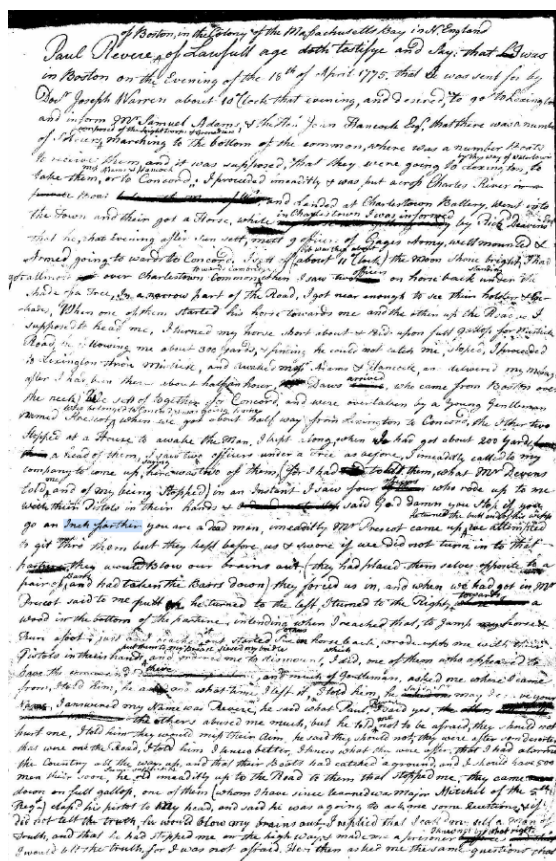 of Boston, in the Colony of the Massachusetts Bay in N. England
Paul Revere, of Lawfull age doth testifye and Say; that I was
in Boston on the Evening of the 18th of April 1775, that I was sent for by
Doct. Joseph Warren about 10 Clock that evening, and desired, to go to Lexington
and inform Mr Samuel Adams & the Hon John Hancock Esqr that there was a number
composed of the Light troops & Grenadiers
of Soldiers marching to the bottom of the common, where was a number Boats
by the way of Watertown
to receive them, and it was supposed, that they were going to Lexington, to
take them, or to Concord. I proceeded imeaditly & was put across Charles River
Boat and landed at Charlestown Battery, went into
in Charlestown I was informed
the Town and their got a Horse, while by Richd Devens
that he, that evening after Sun sett, mett 9 officers of Gages Army, well mounted &
Armed going towards Concord. I sett off (about 11 Clock) the Moon Shone bright, I had
towards Concord
got allmost over Charlestown Common when I saw two officers on horse back under the
Shade of a Tree, In a narrow part of the Road, I got near enough to see their holsters &
When one of them Started his horse towards me and the other up the Road as I
supposed to head me, I turned my horse short about & rid upon full gallop for Mistick
Road, he following me about 300 yards, & finding he could not catch me, stoped, I proceeded
to Lexington thro Mistick, and awaked Messrs Adams & Hancock, and delivered my message
after I had been there about half an hour, Daws arrived, who came from Boston over
the neck; We sett off together for Concord, and were overtaken by a young Gentleman
named Prescot, who belonged to Concord & was going home
when we got about half way from Lexington to Concord, the other two
stopped at a House to awake the Man, I kept along, when I had got about 200 yards
a head of them, I saw two officers under a tree as before, I imeaditly called to my
company to come up, saying here was two of them, (for I had told them, what Mr Devens
told me, and of my being stopped) in an Instant I saw four officers who rode up to me
with their Pistols in their hands & said God damn you stop if you
go an Inch farther you are a dead man imeaditly Mr Prescot came up, we attempted
to git thro them but they kept before us & swore if we did not turn in to that
pasture, they would blow our brains out (they had placed them selves opposite to a
pair of Barrs, and had taken the Barrs down) they forced us in, and when we had got in Mr
Prescot said to me putt on, he turned to the left, I turned to the Right, towards a
wood in the bottom of the pasture, intending when I reached that, to Jump my horse &
Run afoot, Just as I reached it, out started Six officers on horse back, rode up to me with their
put them to my breast, siesed my bridle
Pistols in their hands, and ordered me to dismount, which I did, one of them who appeared to
have the command there, and much of a Gentleman, asked me where I came
from, I told him, he asked what time I left it, I told him, he
I answered my Name was Revere, he said what Paul Revere? yes,
the others abused me much, but he told me not to be afraid, they should not
hurt me, I told him they would miss their Aim, he said they should not, they were after some deserters
that were on the Road, I told him I knew better, I knew what they were after, that I had alarmed
the Country all the way up, and that their Boats had catched aground, and I should have 500
men their soon, he rid imeaditly up to the Road to them that stopped me, they came
down on full gallop, one of them (whom I have since learned was Major Mitchel of the 5th
Regt) clapt his pistol to my head, and said he was a going to ask me some Questions, & if I
did not tell the truth, he would blow my brains out, I replied that I call'd my self a man of
truth, and that he had stopped me on the highway, & made me a prisoner I knew not by what right
I would tell the truth, for I was not afraid. He then asked me the same questions that